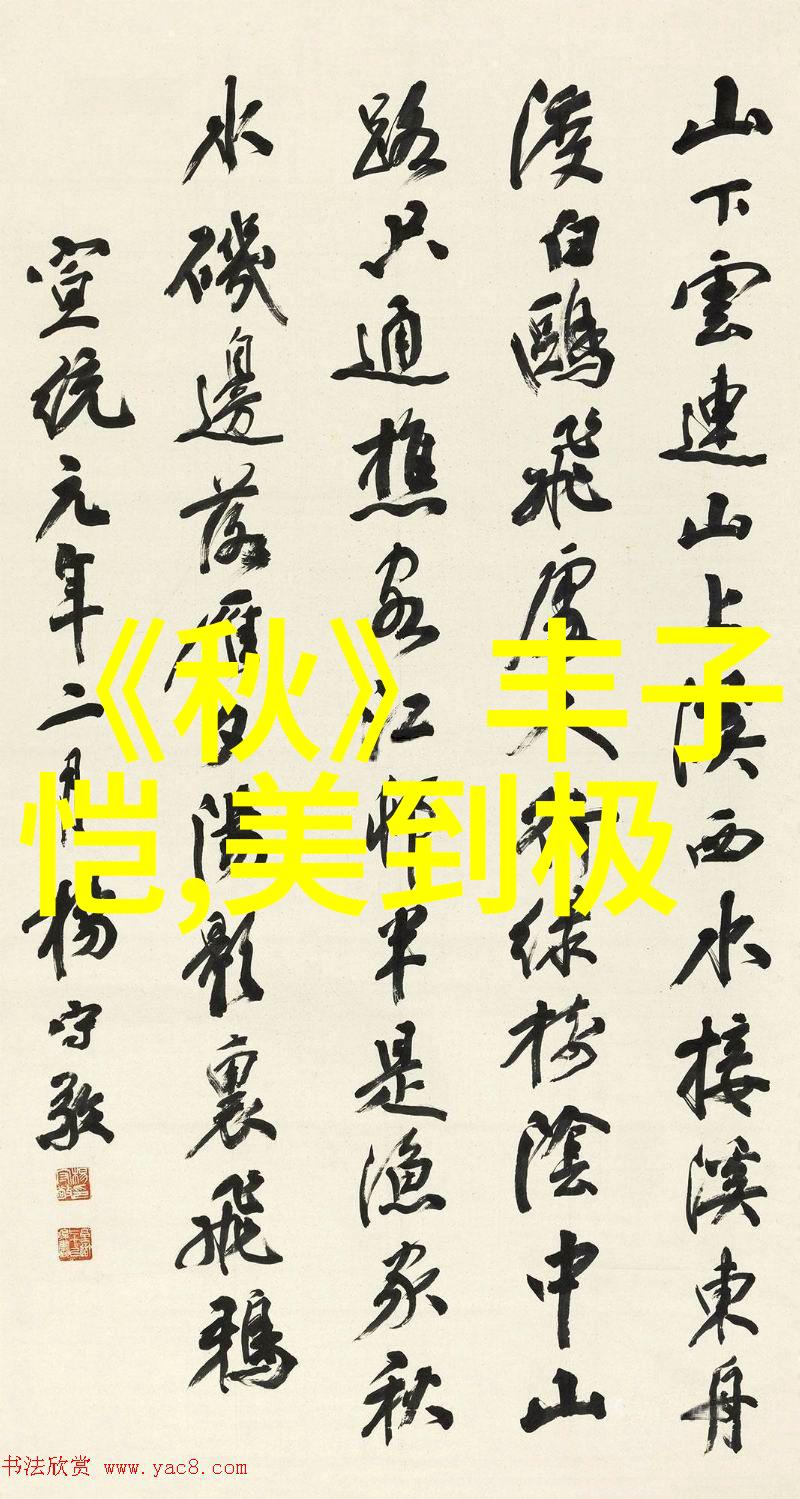 山下雲連山上溪西水接溪東舟
渡白鷗飛處人行綠樹陰中山
路只通樵客江村半是漁家秋
水磯邊落雁夕陽影裏飛鴉
宣統元年二月楊守敬
《秋》丰子
恺,美到极
书法欣赏 www.yac8.com